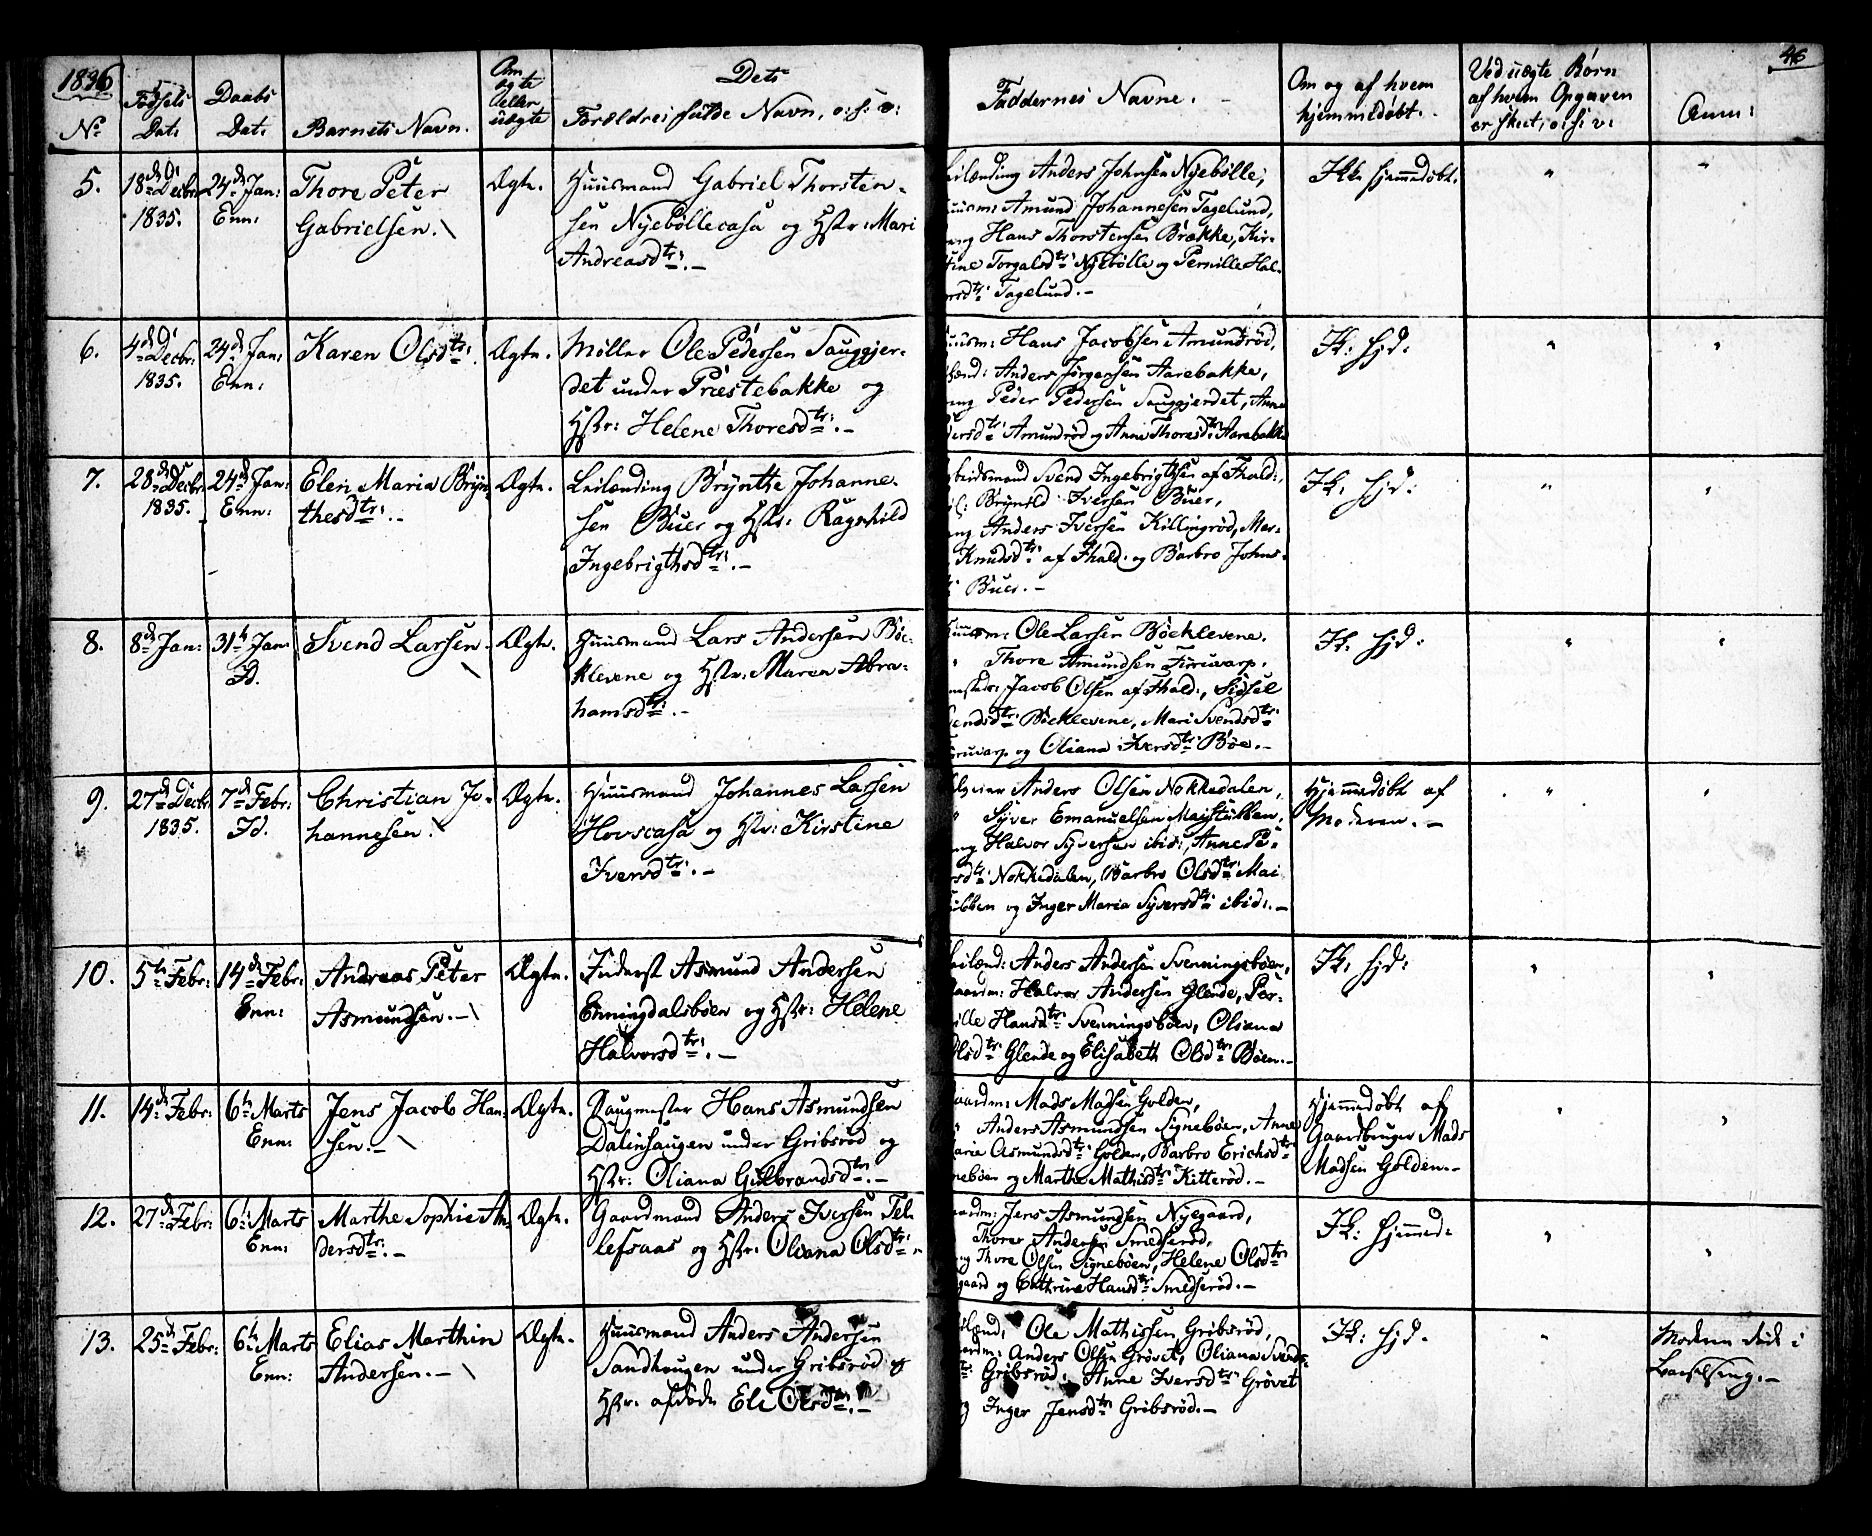 1836
46
Nº
Fødsels
Dat:
Daabs
Dat:
Barnets Navn.
Om
ægte
eller
uægte
Dets
Forældres fulde Navn, o: s: v:
Faddernes Navne. -
Om og af hvem
hjemmedøbt.
Ved uægte Børn
af hvem Opgaven
er skeet, o: s: v:
Anm:
5.
18de Decbr
1835.
24de Jan:
Enn:
Thore Peter
Gabrielsen.
Ægte.
Huusmand Gabriel Thorsten-
sen Nyebøllecasa og Hstr: Mari
Andreasdtr:.-
Leilænding Anders Johnsen Nyebølle,
Huusm: Amund Johannesen Tagelund,
Hans Thorstensen Brække, Kir-
stine Torgalsdtr: Nyebølle og Pernille Hal-
Tagelund.-
Ik: hjemmedøbt.
"
"
6.
4de Decbr:
1835.
24de Jan:
Enn:
Karen Olsdtr:
Ægte.
Møller Ole Pedersen Sauggjer-
det under Præstebakke og
Hstr: Helene Thoresdtr:.-
Huusm: Hans Jacobsen Amundrød,
Anders Jørgensen Aarebakke,
Peder Pedersen Sauggjerdet, Anne
Amundrød og Anne Thoresdtr: Aarebakke
Ik: hjd:
"
"
7.
28de Decbr:
1835.
24de Jan:
Enn:
Elen Maria Bryn-
thesdtr:.-
Ægte.
Leilænding Brynthe Johanne-
sen Buer og Hstr: Ragnhild
Ingebrigthsdtr:.-
Arbeidsmand Svend Ingebrigthsen af Fhald:,
Brynild Iversen Buer,
Anders Iversen Killingrød, Mar-
Knudsdtr: af Fhald: og Barbro Johns-
Buer.-
Ik: hjd:
"
"
8.
8de Jan:
31te Jan:
Id.
Svend Larsen.
Ægte.
Huusmand Lars Andersen Bøc-
klevene og Hstr: Maren Abra-
hamsdtr:.-
Huusm: Ole Larsen Bøcklevene.
" Thore Amundsen
Jacob Olsen af Fhald:, Sidsel
Svendsdtr: Bøcklevene, Mari Svendsdtr:
og Oliana Iversdtr: Bøe.-
Ik: hjd:
"
"
9.
27de Decbr
1835.
7de Febr:
Id.
Christian Jo-
hannesen.
Ægte.
Huusmand Johannes Larsen
Hovscasa og Hstr: Kirstine
Iversdtr:.-
Anders Olsen Nokkedalen,
" Syver Emanuelsen Maistubben,
Halvor Syversen ibid:, Anne Pe-
Nokkedalen, Barbro Olsdtr: Mai-
stubben og Inger Maria Syversdtr: ibid:.-
Hjemmedøbt af
Moderen.-
"
"
10.
5te Febr:
14de Febr:
Enn:
Andreas Peter
Asmundsen.-
Ægte.
Inderst Asmund Andersen
Enningdalsbøen og Hstr: Helene
Halvorsdtr:.-
Leilænd: Anders Andersen Svenningsbøen,
Gaardm: Halvor Andersen Glende, Per-
nille Hansdtr: Svenningsbøen, Oliana
Olsdtr: Glende og Elisabeth Olsdtr: Bøen.-
Ik: hjd:
"
"
11.
14de Febr:
6te Marts
Enn:
Jens Jacob Han-
sen.-
Ægte.
Saugmester Hans Asmundsen
Dalenhaugen under Gribsrød og
Hstr: Oliana Gulbrandsdtr:.-
Gaardm: Mads Madsen Golden,
" Anders Asmundsen Signebøen, Anne
Maria Asmundsdtr: Golden, Barbro Erichsdtr:
Signebøen og Marthe Mathisdtr: Kitterød.-
Hjemmedøbt af
Gaardbruger Mads
Madsen Golden.-
"
"
12.
27de Febr:
6te Marts
Enn:
Marthe Sophie An-
dersdtr:.-
Ægte.
Gaardmand Anders Iversen Tel-
lefsaas og Hstr: Oliana Olsdtr:.-
Gaardm: Jens Asmundsen Nyegaard,
Thorer Andersen Smedserød,
og Thore Olsen Signebøen, Helene Olsdtr:
Nyegaard og Cathrine Hansdtr: Smedserød.-
Ik: hjemmed:
"
"
13.
25de Febr:
6te Marts
Enn:
Elias Marthin
Andersen.-
Ægte.
Huusmand Anders Andersen
Sandhougen under Gribsrød og
Hstr: afdøde Eli Olsdtr:.-
Leilænd: Ole Mathissen Gribsrød,
Gaardm: Anders Olsen Grøvet, Oliana Svends-
dtr: Gribsrød, Anne Iversdtr: Grøvet
og Inger Jensdtr: Gribsrød.-
Ik: hjd.
"
Moderen døde i
Barselseng.-